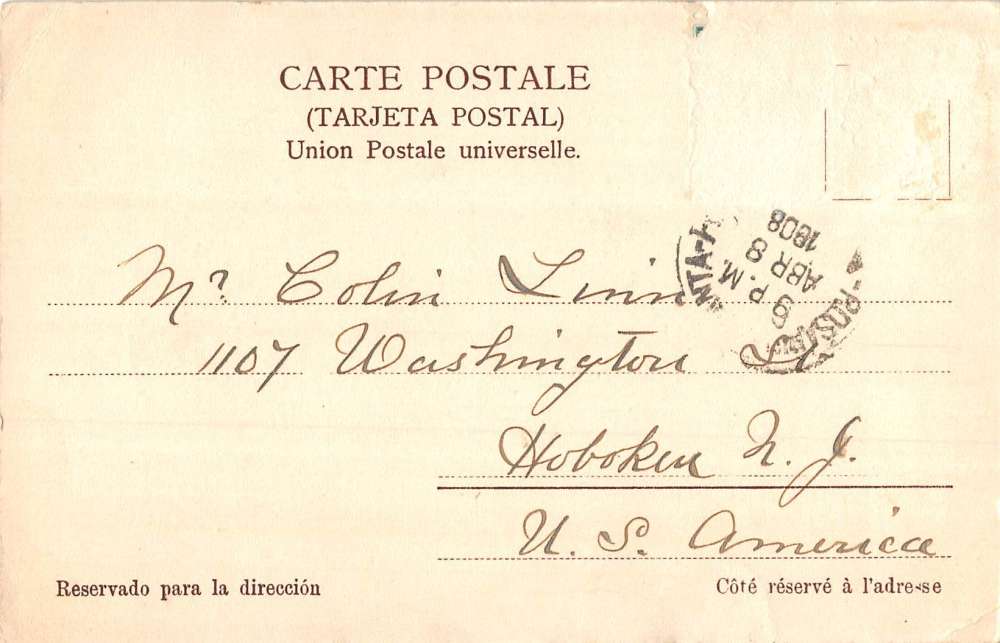 CARTE POSTALE
(TARJETA POSTAL)
Union Postale universelle.
8 P.M.
ABR 8
1908
Mr. Colin Linn
1107 Washington St
Hoboken N. J.
U. S. America
Reservado para la dirección
Côté réservé à l'adresse